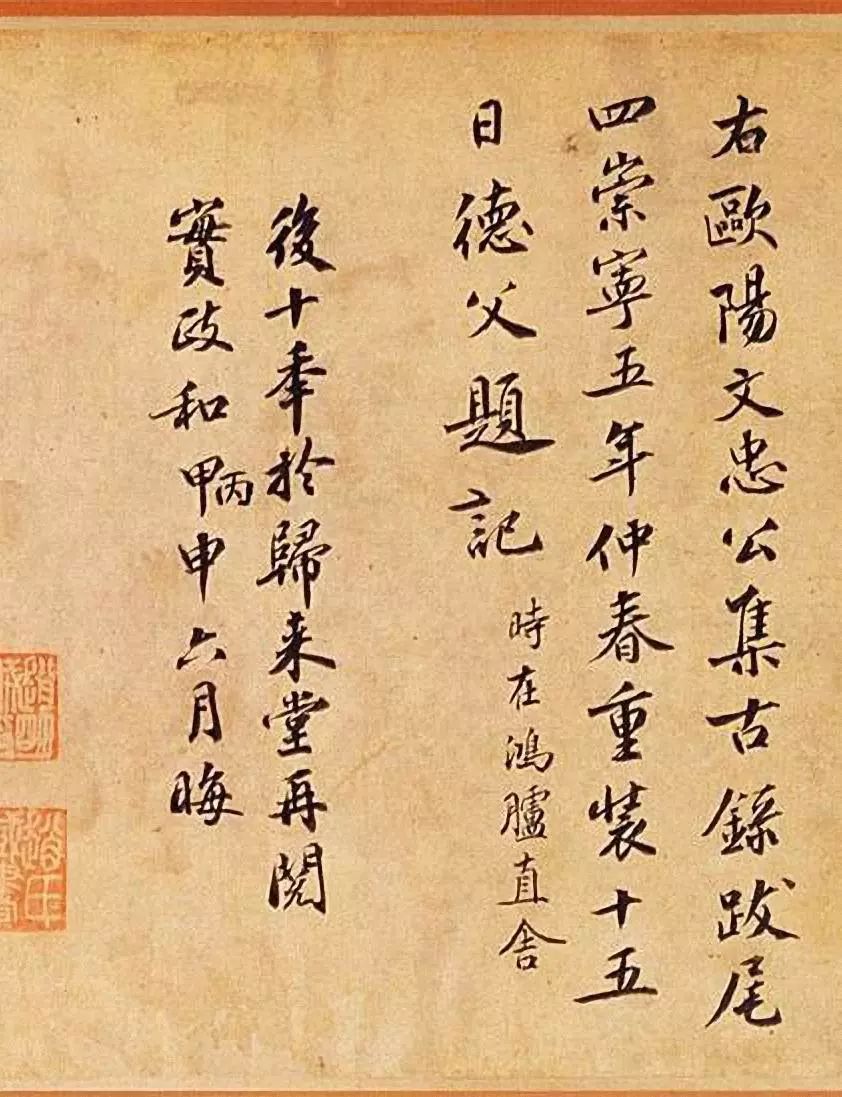 右歐陽文忠公集古錄跋尾
四崇寧五年仲春重裝十五
日德父題記
時在鴻臚直舍
後十年於歸来堂再閱
實政和甲丙申六月晦